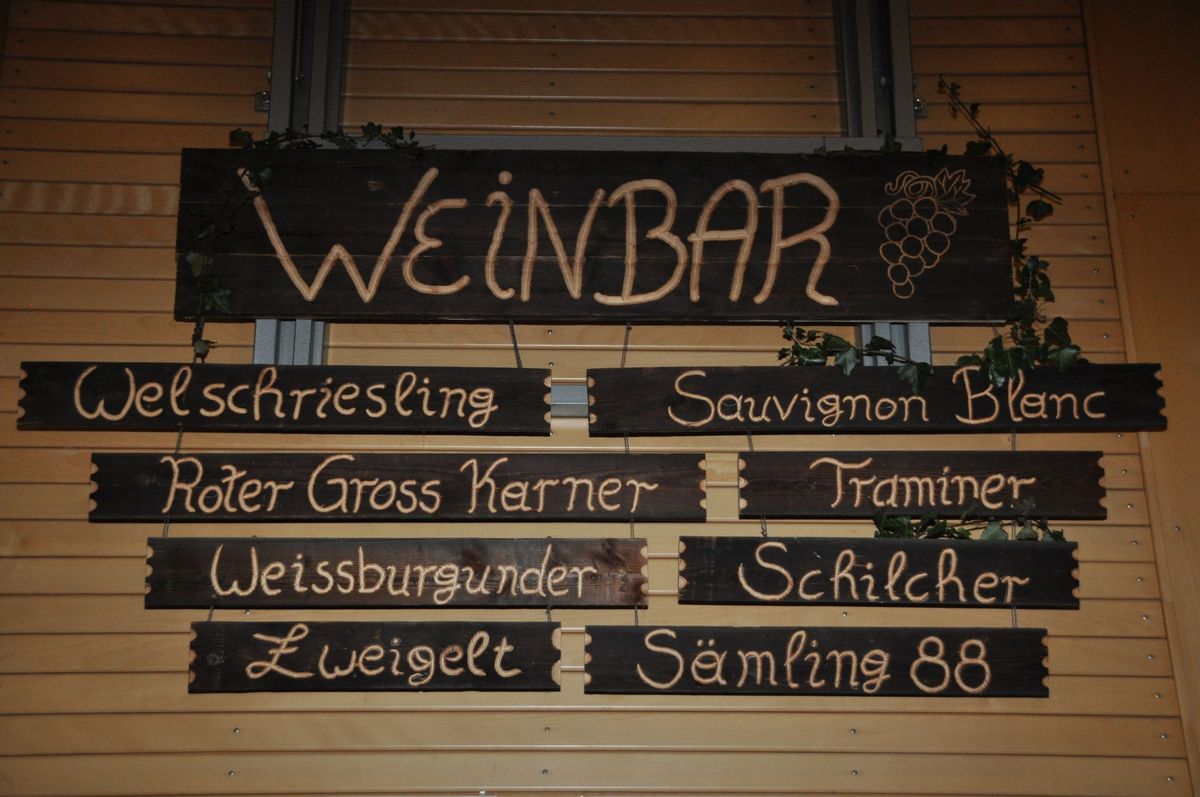 WEiNBAR
Welschriesling
Sauvignon Blanc
Roter Gross Karner
Traminer
Weissburgunder
Schilcher
Zweigelt
Sämling 88